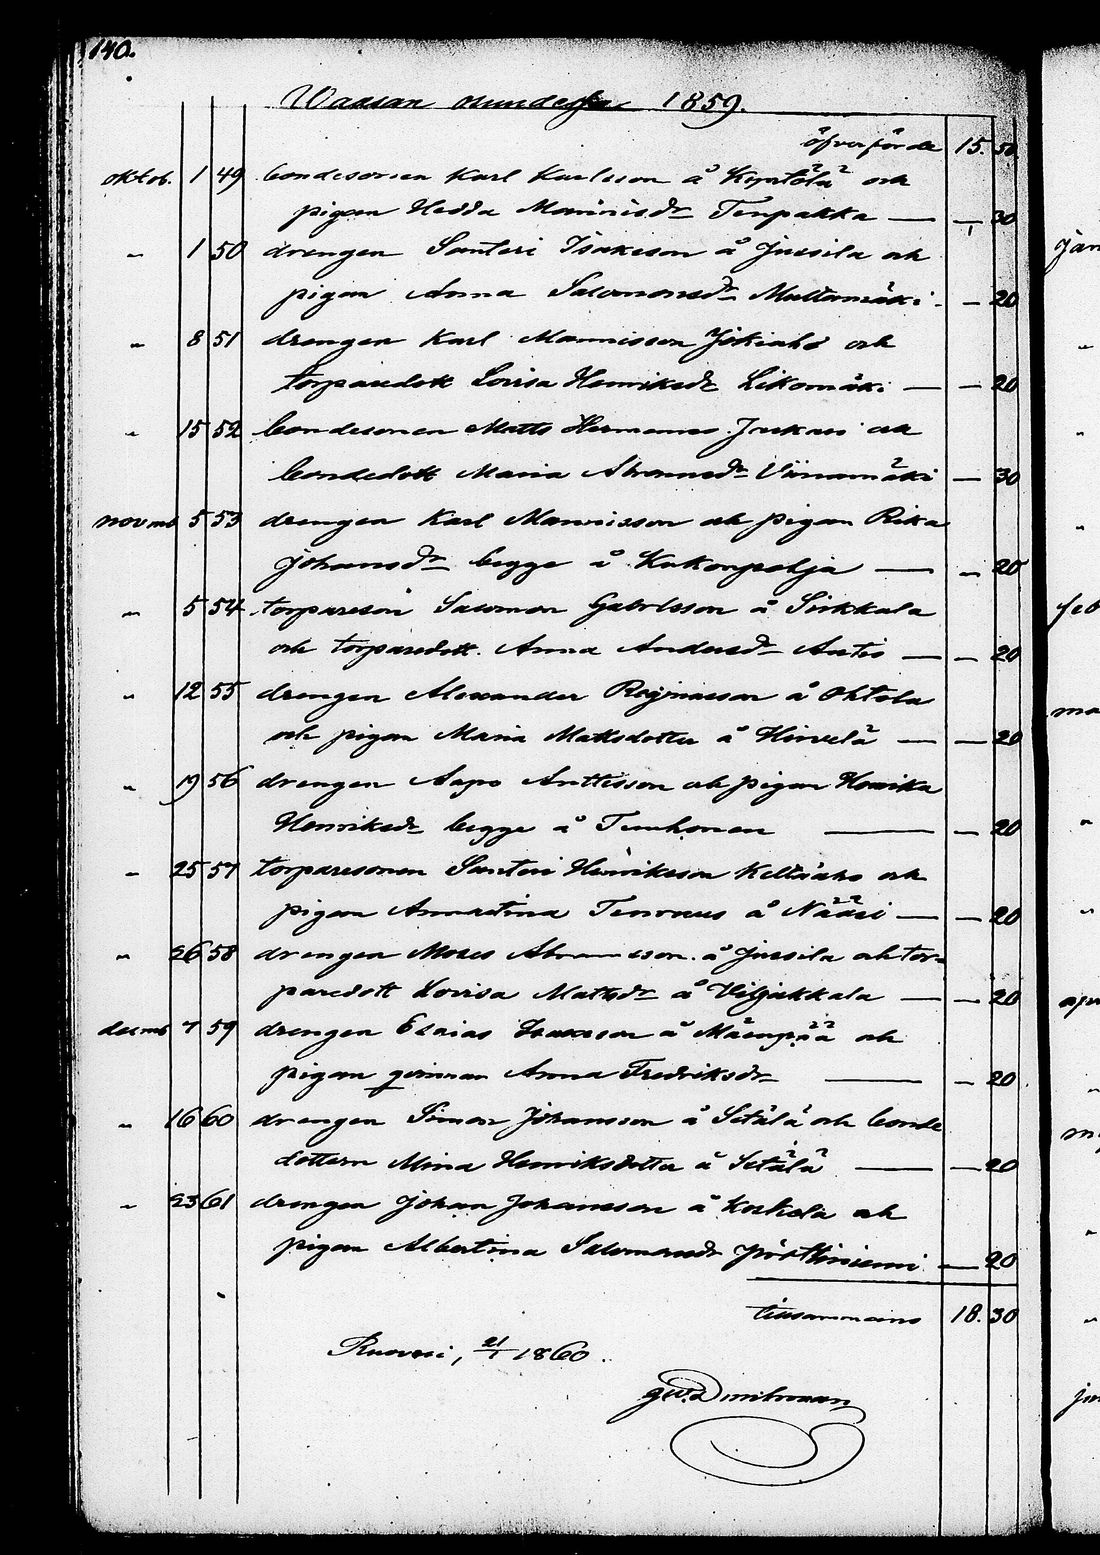 140.
Waasan 1859.
öfverförde 15. 50
oktob. 1 49 bondesonen Karl Karlsson å och
pigan Hedda Mannisdr Tenpakka — — 30
" 1 50 drengen Santeri Isaksson å Jussila och
pigan Anna Salomonsdr Multamäki — 20
" 8 51 drengen Karl Mannisson Jokiaho och
torparedott Lovisa Henriksdr Likomäki — — 20
" 15 52 bondesonen Matts Hermanss och
bondedott Maria Abramsdr Viinamäki — 30
novmb 5 53 drengen Karl Mannisson och pigan Rika
Johansdr begge å Kukonpohja — — 20
" 5 54 torpareson Salomon Gabrlsson å Sirkkala
och torparedott. Anna Andersdr — — 20
" 12 55 drengen Alexander å Ohtola
och pigan Maria Mattsdotter å Hirvelä — — 20
" 19 56 drengen Aapo Anttisson och pigan Henrika
Henriksdr begge å — — 20
" 25 57 torparesonen Santeri Henriksson och
pigan Annastina å Nääsi — — 20
" 26 58 drengen Moses Abramsson å Jussila och tor-
paredott Lovisa Mattsdr å Viljakkala — — 20
decmb 7 59 drengen Esaias Isaksson å Mäenpää och
pigan Anna Fredriksdr — — 20
" 16 60 drengen Simon Johansson å Setälä och bonde
dottern Mina Henriksdotter å Setälä — — 20
" 23 61 drengen Johan Johansson å Koskela och
pigan Albertina Salomonsdr — 20
tillsammans 18. 30
Ruovesi, 21/1 1860.
jan
feb
ma
apr